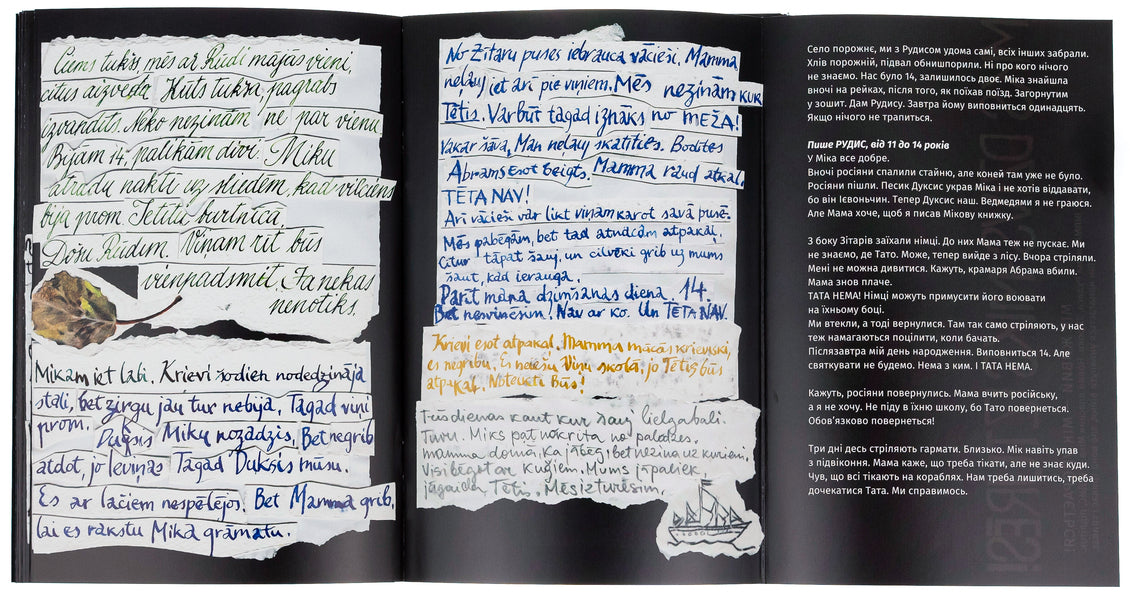 Ciems tukšs, mēs ar Rūdi mājās vieni,
citus aizveda. Kūts tukša, pagrabs
izvandīts. Neko nezinām ne par vienu.
Bijām 14, palikām divi. Miku
atradu naktī uz sliedēm, kad vilciens
bija prom. Ietītā burtnīcā,
Došu Rūdim. Viņam rīt būs
vienpadsmit. Ja nekas
nenotiks.
Mikam iet labi. Krievi šodien nodedzināja
stali, bet zirgu jau tur nebija. Tagad viņi
prom. Duksis Miku nozadzis, Bet negrib
atdot, jo Ieviņas Tagad Duksis mūsu.
Es ar lāčiem nespēlējos. Bet Mamma grib,
lai es rakstu Mika grāmatu.
No Zītaru puses iebrauca vācieši. Mamma
neļauj iet arī pie viņiem. Mēs nezinām KUR
Tētis. Varbūt tagad iznāks no MEŽA!
Vakar šāva. Man neļauj skatīties. Bodītes
Abrams esot beigts. Mamma raud atkal.
TĒTA NAV!
Arī vācieši var likt viņam karot savā pusē.
Mēs pabēgām, bet tad atnācām atpakaļ.
Citur tāpat šauj, un cilvēki grib uz mums
šaut, kad ierauga.
Parīt mana dzimšanas diena. 14.
Bet nesvinēsim! Nav ar ko. Un TĒTA NAV.
Krievi esot atpakaļ. Mamma mācās krieviski,
es negribu. Es neiešu Viņu skolā, jo Tētis būs
atpakaļ. Noteikti Būs!
Trīsdienas kaut kur šauj lielgabali.
Tuvu. Miks pat nokrita no palodzes.
mamma domā, ka jābēg, bet nezina uz kurieni.
Visi bēgot ar kuģiem. Mums jāpaliek,
jāgaida Tētis. Mēs izturēsim.
Село порожнє, ми з Рудисом удома самі, всіх інших забрали.
Хлів порожній, підвал обнишпорили. Ні про кого нічого
не знаємо. Нас було 14, залишилось двоє. Міка знайшла
вночі на рейках, після того, як поїхав поїзд. Загорнутим
у зошит. Дам Рудису. Завтра йому виповниться одинадцять.
Якщо нічого не трапиться.
Пише РУДИС, від 11 до 14 років
У Міка все добре.
Вночі росіяни спалили стайню, але коней там уже не було.
Росіяни пішли. Песик Дуксис украв Міка і не хотів віддавати,
бо він Ієвоньчин. Тепер Дуксис наш. Ведмедями я не граюся.
Але Мама хоче, щоб я писав Мікову книжку.
З боку Зітарів заїхали німці. До них Мама теж не пускає. Ми
не знаємо, де Тато. Може, тепер вийде з лісу. Вчора стріляли.
Мені не можна дивитися. Кажуть, крамаря Абрама вбили.
Мама знов плаче.
ТАТА НЕМА! Німці можуть примусити його воювати
на їхньому боці.
Ми втекли, а тоді вернулися. Там так само стріляють, у нас
теж намагаються поцілити, коли бачать.
Післязавтра мій день народження. Виповниться 14. Але
святкувати не будемо. Нема з ким. І ТАТА НЕМА.
Кажуть, росіяни повернулись. Мама вчить російську,
а я не хочу. Не піду в їхню школу, бо Тато повернеться.
Обов'язково повернеться!
Три дні десь стріляють гармати. Близько. Мік навіть упав
з підвіконня. Мама каже, що треба тікати, але не знає куди.
Чув, що всі тікають на кораблях. Нам треба лишитись, треба
дочекатися Тата. Ми справимось.